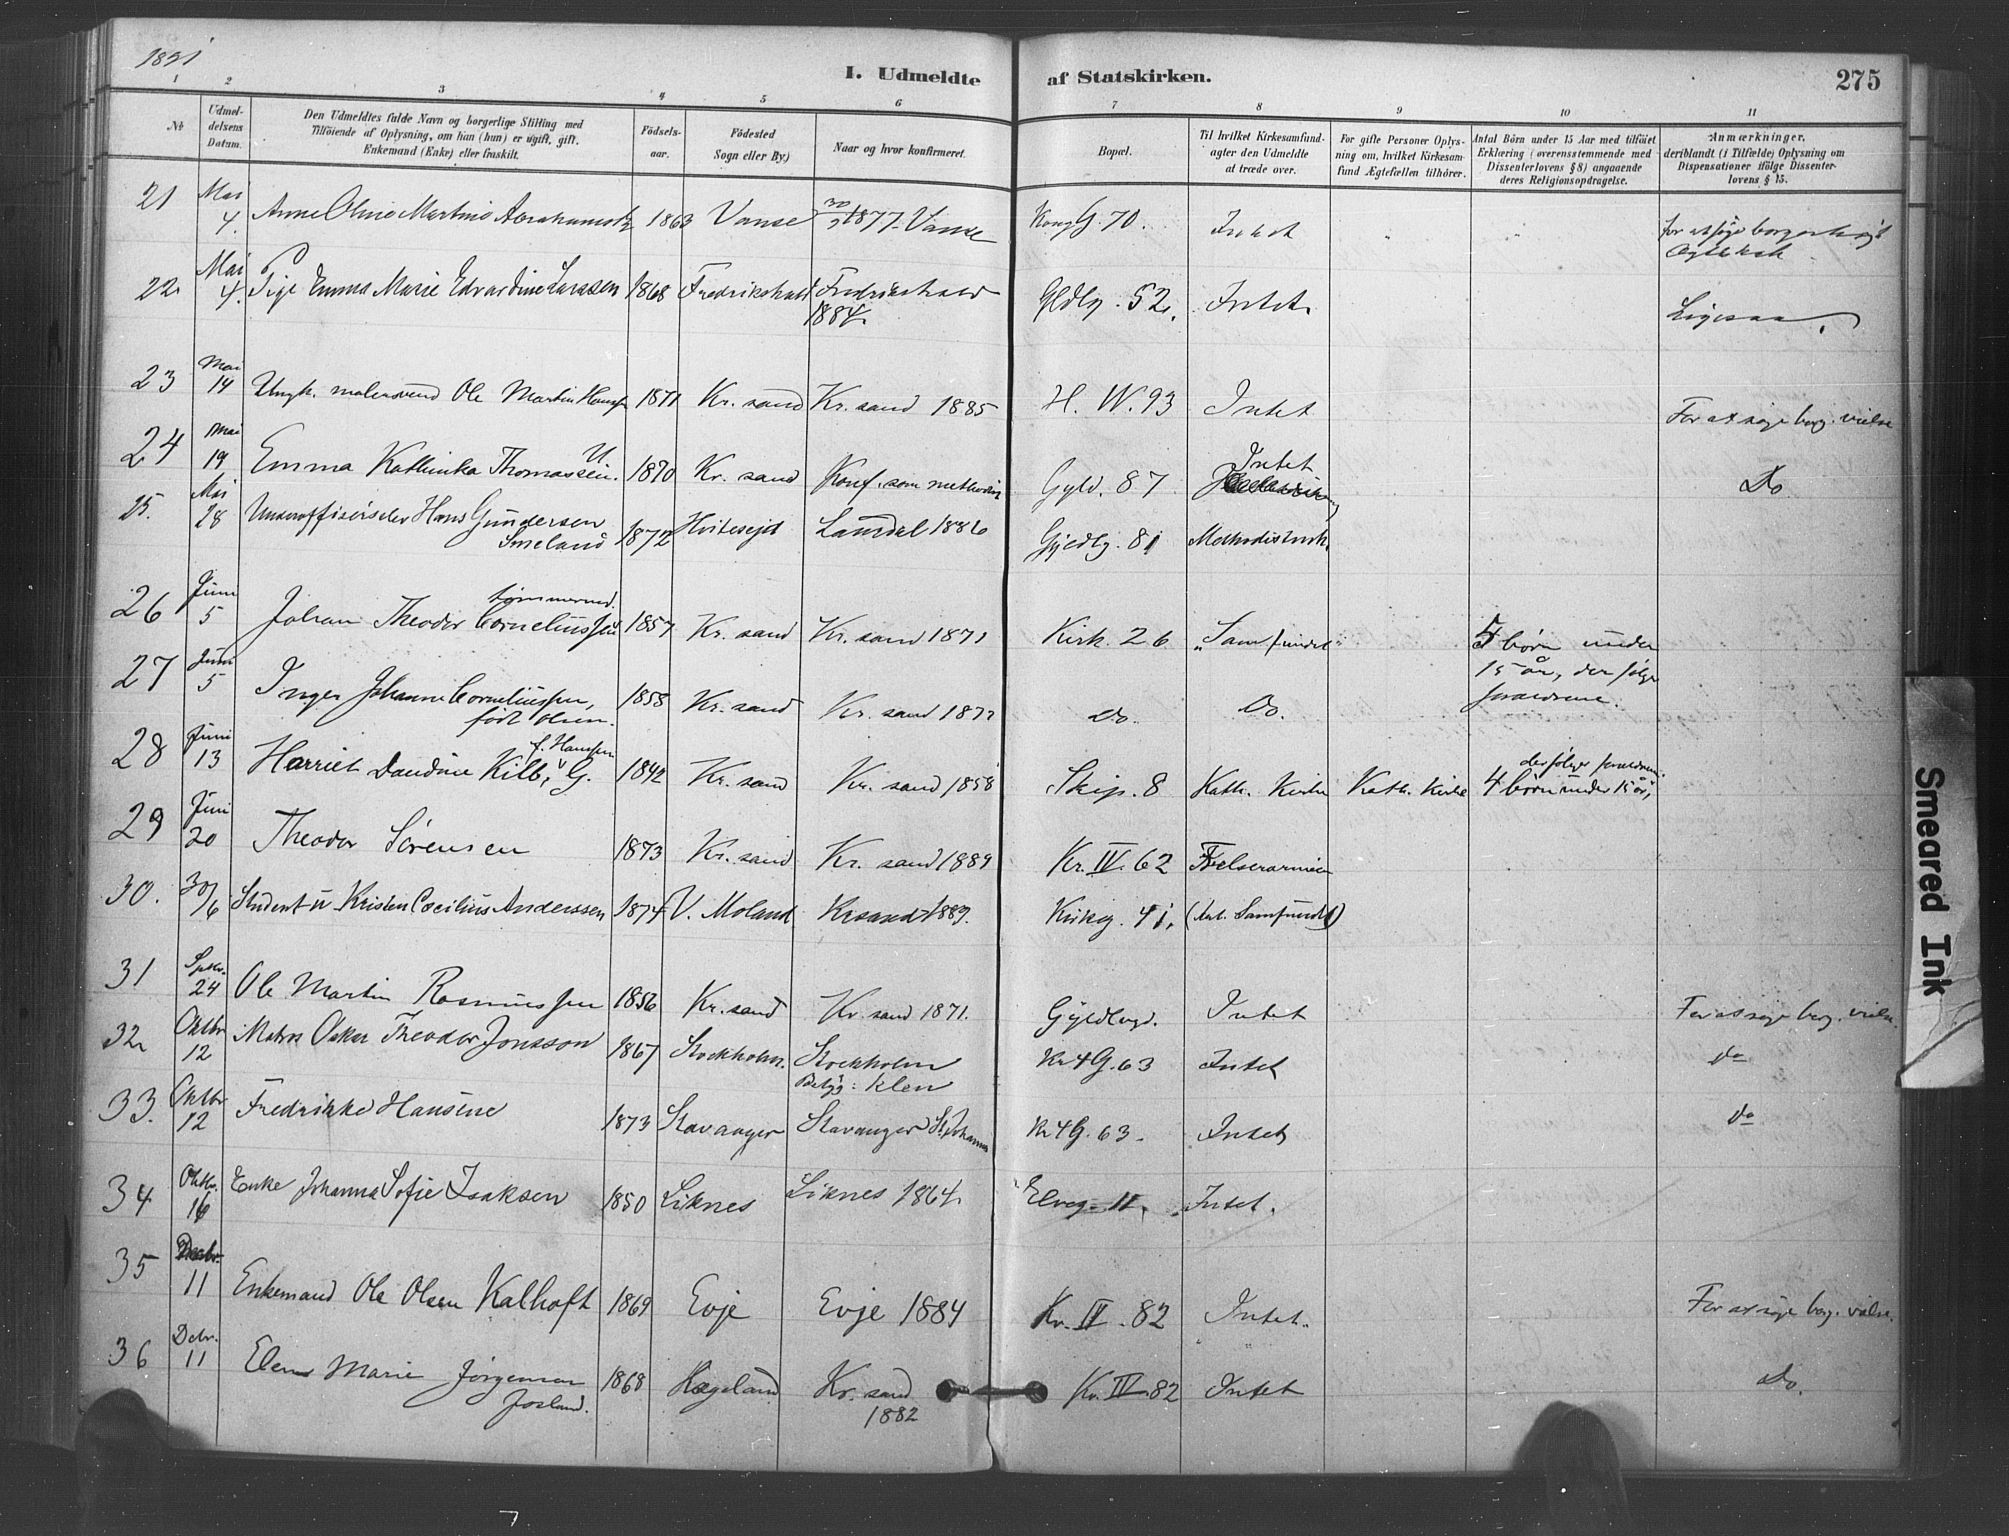 1891
I. Udmeldte af Statskirken. 275
1 2 3 4 5 6 7 8 9 10 11
№
Udmeldelsens Datum.
Den Udmeldtes fulde Navn og borgerlige Stilling med
Tilföiende af Oplysning, om han (hun) er ugift, gift,
Enkemand (Enke) eller fraskilt.
Födselsaar.
Födested
Sogn eller By)
Naar og hvor konfirmeret.
Bopæl.
Til hvilket Kirkesamfund-
agter den Udmeldte
at træde over.
For gifte Personer Oplys-
ning om, hvilket Kirkesam-
fund Ægtefællen tilhörer.
Antal Börn under 15 Aar med tilföiet
Erklæring (overensstemmende med
Dissenterlovens § 8) angaaende
deres Religionsopdragelse.
Anmærkninger,
deriblandt (i Tilfælde) Oplysning om
Dispensationer ifölge Dissenter-
lovens § 15.
21 Mai 4. Anne Oline Martine 1863 Vanse 1877 Vanse G. 70. Intet
22 Mai 4. Pige Emma Marie Edvardine Larssen 1868 Fredrikshald Fredrikshald 1884. Gldlg. 52. Intet. Ligesaa.
23 Mai 14 Ungk. malersvend Ole Martin Hanssen 1871 Kr. sand Kr. sand 1885 H. W. 93 Intet For at söge borg. vielse
24 Mai 19 Emma Kathinka Thomassen. U 1870 Kr. sand Konf. som methodist Gyld. 87 Intet Do
25. Mai 28 Underoffiserselev Hans Gundersen Smeland 1872 Hvitesejd Laurdal 1886 Gyldlg. 81 Methodistmk.
26 Juni 5 Johan Theodor Corneliussen tömmermd. 1857 Kr. sand Kr. sand 1871 Kirk. 26 "Samfundet" 5 börn under
15 år, der fölge
forældrene.
27 Juni 5 Inger Johanne Corneliussen, född Olsen. 1858 Kr. sand Kr. sand 1872 Do. Do.
28 Juni 13 Harriet Dandine Kilb, f. Hanssen G. 1842 Kr. sand Kr. sand 1858 Skip. 8 Kath. Kirke Kath. Kirke 4 börn under 15 år, der fölger forældrene.
29 Juni 20 Theodor Sörensen 1873 Kr. sand Kr. sand 1889 Kr. IV. 62 Frelserarmeen
30. 30/6 Student u Kristen Cæcilius Anderssen 1874 V. Moland Krsand 1889. Kirkeg. 41. Samfundet)
31 Septbr. 24 Ole Martin Rasmussen 1856 Kr. sand Kr. sand 1871. Gyldlvgd. Intet For at söge borg. vielse.
32 Oktbr 12 Matros Oskar Theodor Jonsson 1867 Stockholm. Stockholm Kr 4 G. 63 Intet do
33. Oktbr 12 Fredrikke Hansine 1873 Stavanger Stavanger St. Johannes Kr 4 G. 63. Intet do
34 Oktbr. 16 Enke Johanna Sofie Isaksen 1850 Liknes Liknes 1864. Elveg. 11. Intet.
35 Decbr. 11 Enkemand Ole Olsen Kalhoft 1869 Evje Evje 1884 Kr. IV. 82 Intet. For at söge borg. vielse.
36 Debr. 11 Elen Marie Jörgensen Josland. 1868 Hægeland Kr. sand 1882 Kr. IV 82 Intet Do.
Smeared Ink